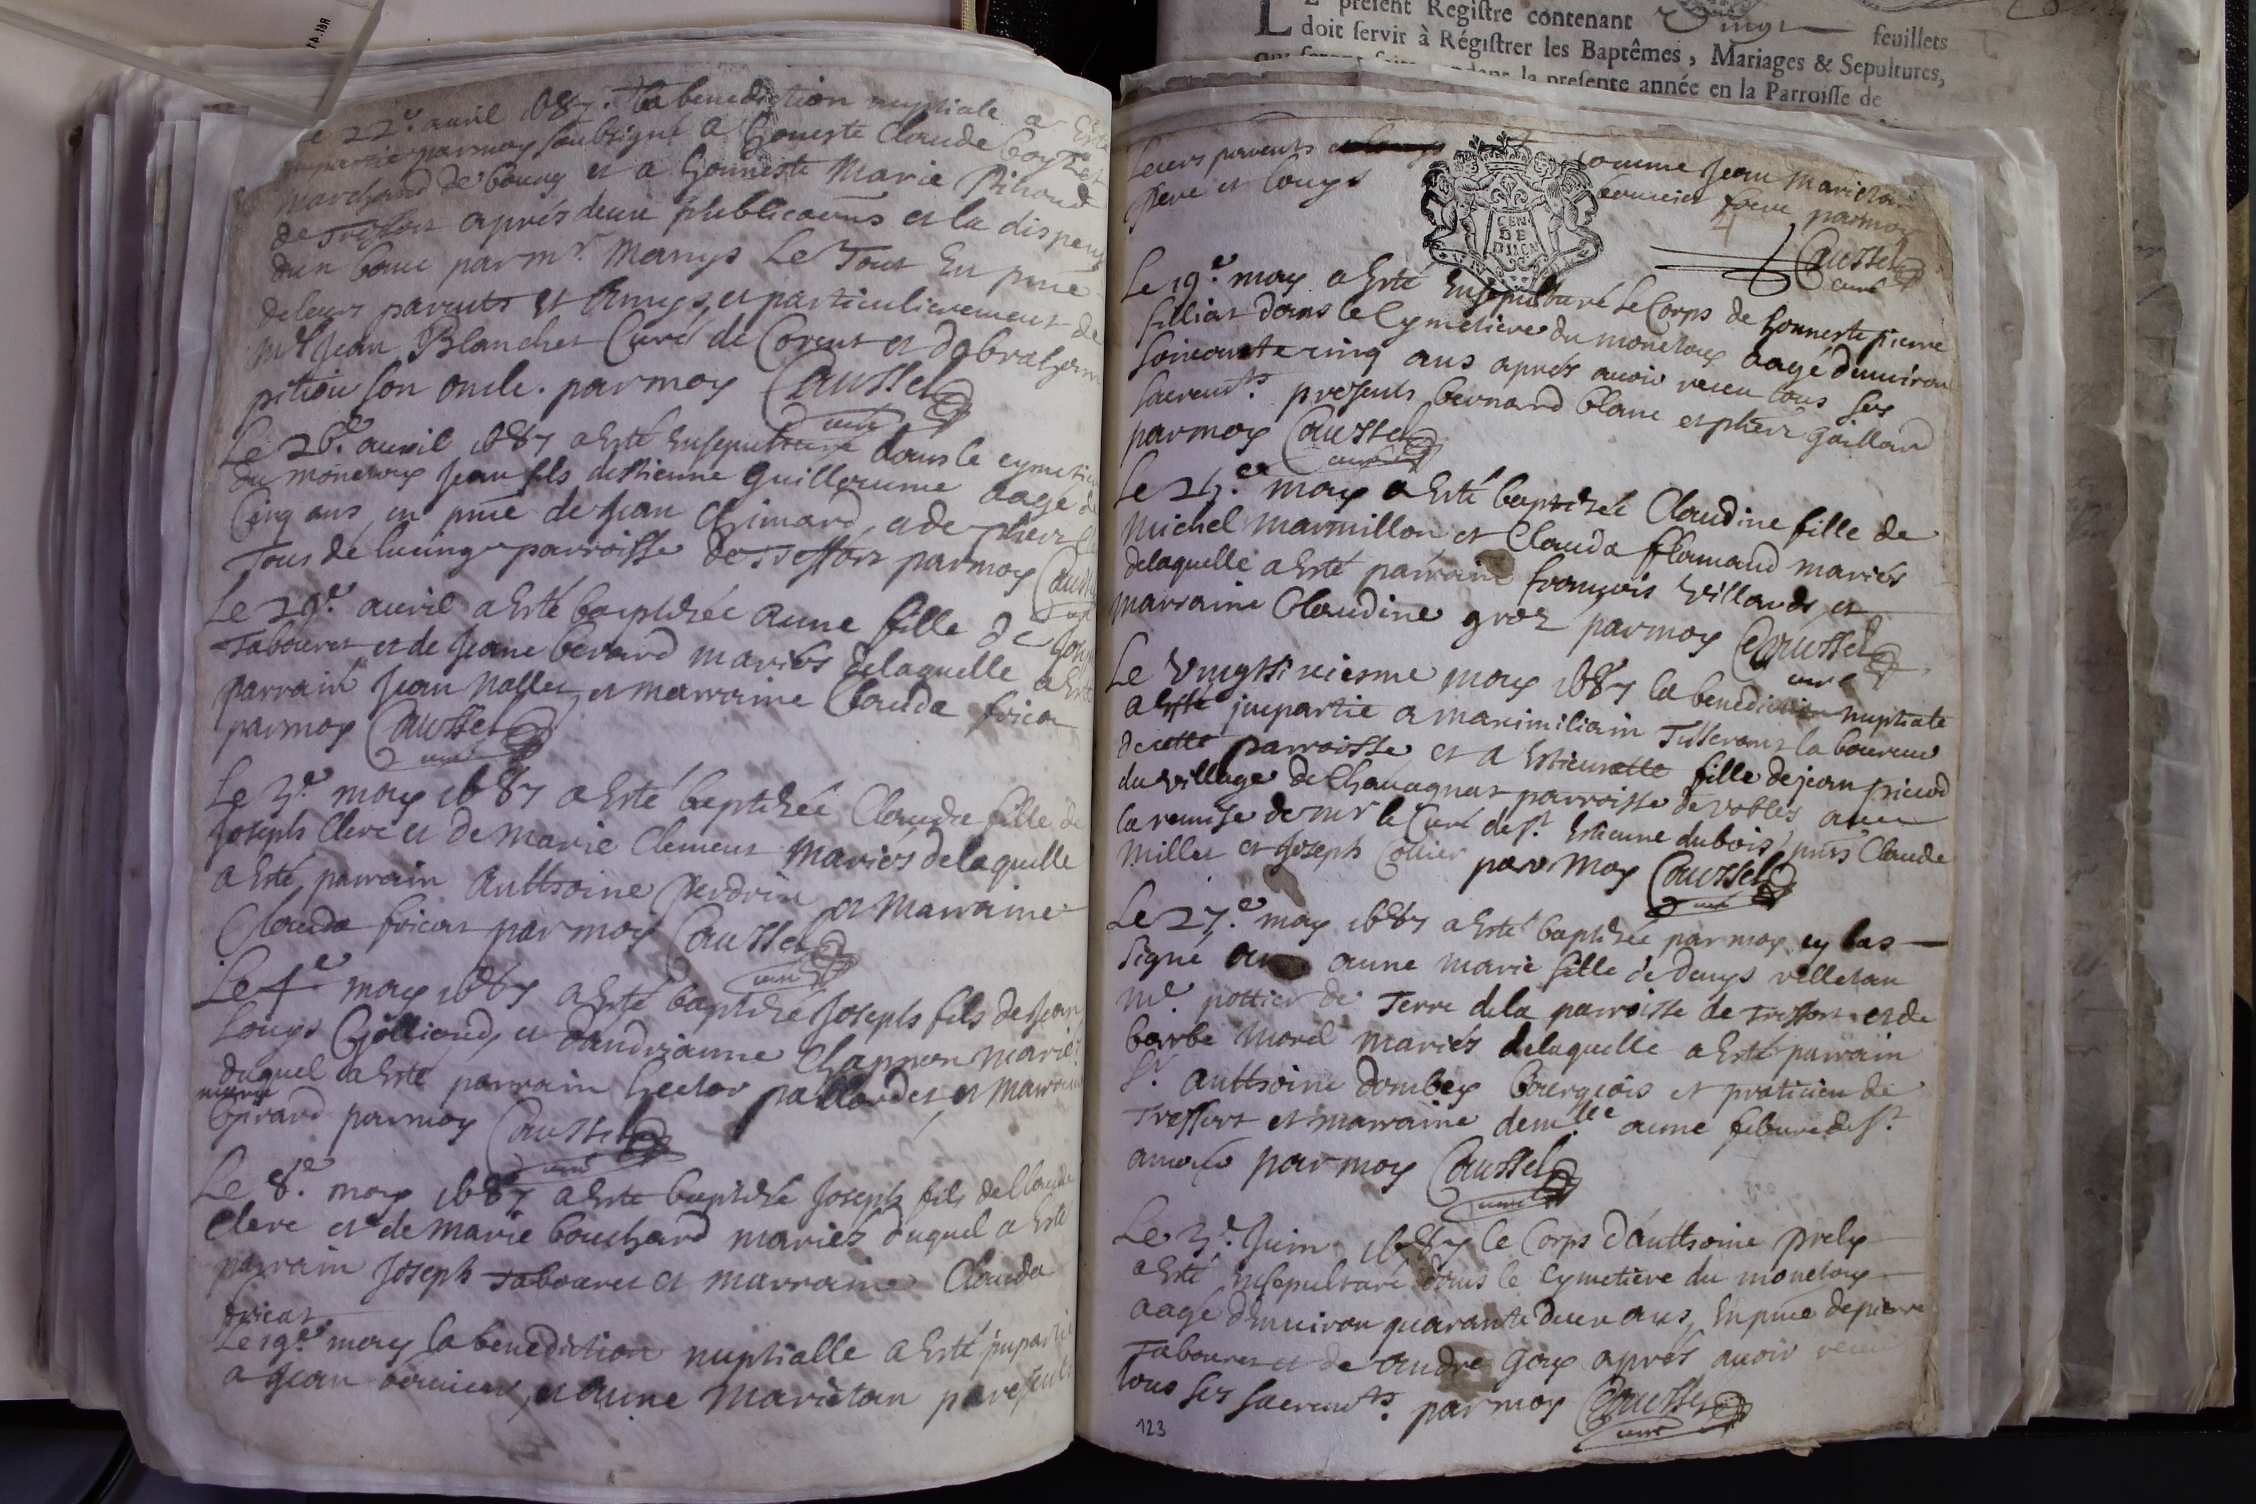 Le 22e. auril 1687. la benediction nuptiale a Esté
impartie parmoy soubsigné a honeste Claude
marchand de bourg et a honneste Marie
de Treffort aprés deux publicaons et la dispense
dun banc par mr. Marys Le Tout En pnce
de leurs parents et amys, et particulierement de
mre Jean Blanchet Curé de Corent et
son oncle. parmoy Caussel
curé
Le 26e. auril 1687 a Esté Ensepulturé dans le cymetiere
du monetay Jean fils destienne Guillerume aagé de
Cinq ans, en pnce de Jean Chimard, et de
Tous de lucinge parroisse de Treffort parmoy Caussel
Le 29e. auril a Esté baptizée anne fille de
Tabouret et de Jeane berard mariés delaquelle a Esté
parrain Jean nallet et marraine Clauda fricat
parmoy Caussel
curé
Le 3e. may 1687 a Esté baptizée Clauda fille de
Joseph Clerc et de Marie Clement Mariés delaquelle
a Esté parrain Anthoine Perdrix et Marraine
Clauda fricat parmoy Caussel
curé
Le 4e may 1687 a Esté baptizé Joseph fils de Jean
Louys Golliand, et dandrianne Chappon mariés
duquel a Esté parrain hector pallandet, et marraine
marie
Girard parmoy Caussel
curé
Le 8e. may 1687 a Esté baptizé Joseph fils de Claude
Clerc et de Marie bouchard mariés duquel a Esté
parrain Joseph Tabouret et marraine Clauda
fricat
Le 19e. may la benediction nuptialle a Esté impartie
a Jean et anne Marietan presents
RL 41
L E present Registre contenant Vingt feuillets
doit servir à Régistrer les Baptêmes, Mariages & Sepultures,
la presente année en la Parroisse de
Leurs parents comme Jean Marietan
Pere et Louys frere parmoy
Caussel
curé
GEN
DE
DIION
Le 19e. may a Esté Ensepulturé Le Corps de honneste pierre
filliat dans le Cymetiere du monetay aagé denuiron
soixante cinq ans aprés auoir receu tous ses
sacremts. presents bernard blanc et phert gaillard
parmoy Caussel
curé
Le 24e. may a Esté baptizée Claudine fille de
Michel Marmillon et Clauda flamand mariés
delaquelle a Esté parrain françois Villards et
marraine Claudine groz parmoy Caussel
curé
Le Vingtsixiesme may 1687 la benediction nuptiale
a Esté impartie a maximiliain Tisserant laboureur
de cette parroisse et a Estiennette fille de jean picod
du village de Chauagnat parroisse de vobles auec
la remise de mr le Curé de st. Estienne dubois, pnts Claude
Millet et Joseph Collier parmoy Caussel
curé
Le 27e. may 1687 a Esté baptizée parmoy cy bas
signé anne marie fille de denys velletan
me. pottier de Terre de la parroisse de Treffort et de
barbe Morel mariés delaquelle a Esté parrain
Sr. Anthoine dombey Bourgeois et praticien de
Treffort et marraine demlle anne febure de st.
amour parmoy Caussel
curé
Le 3e. Juin 1687 le Corps d'Anthoine prely
a Esté insepulturé dans le Cymetiere du monetay
aagé denuiron quarante deux ans, En pnce de pierre
Tabouret et de andre Goy aprés auoir receu
tous ses sacremts. parmoy Caussel
curé
123